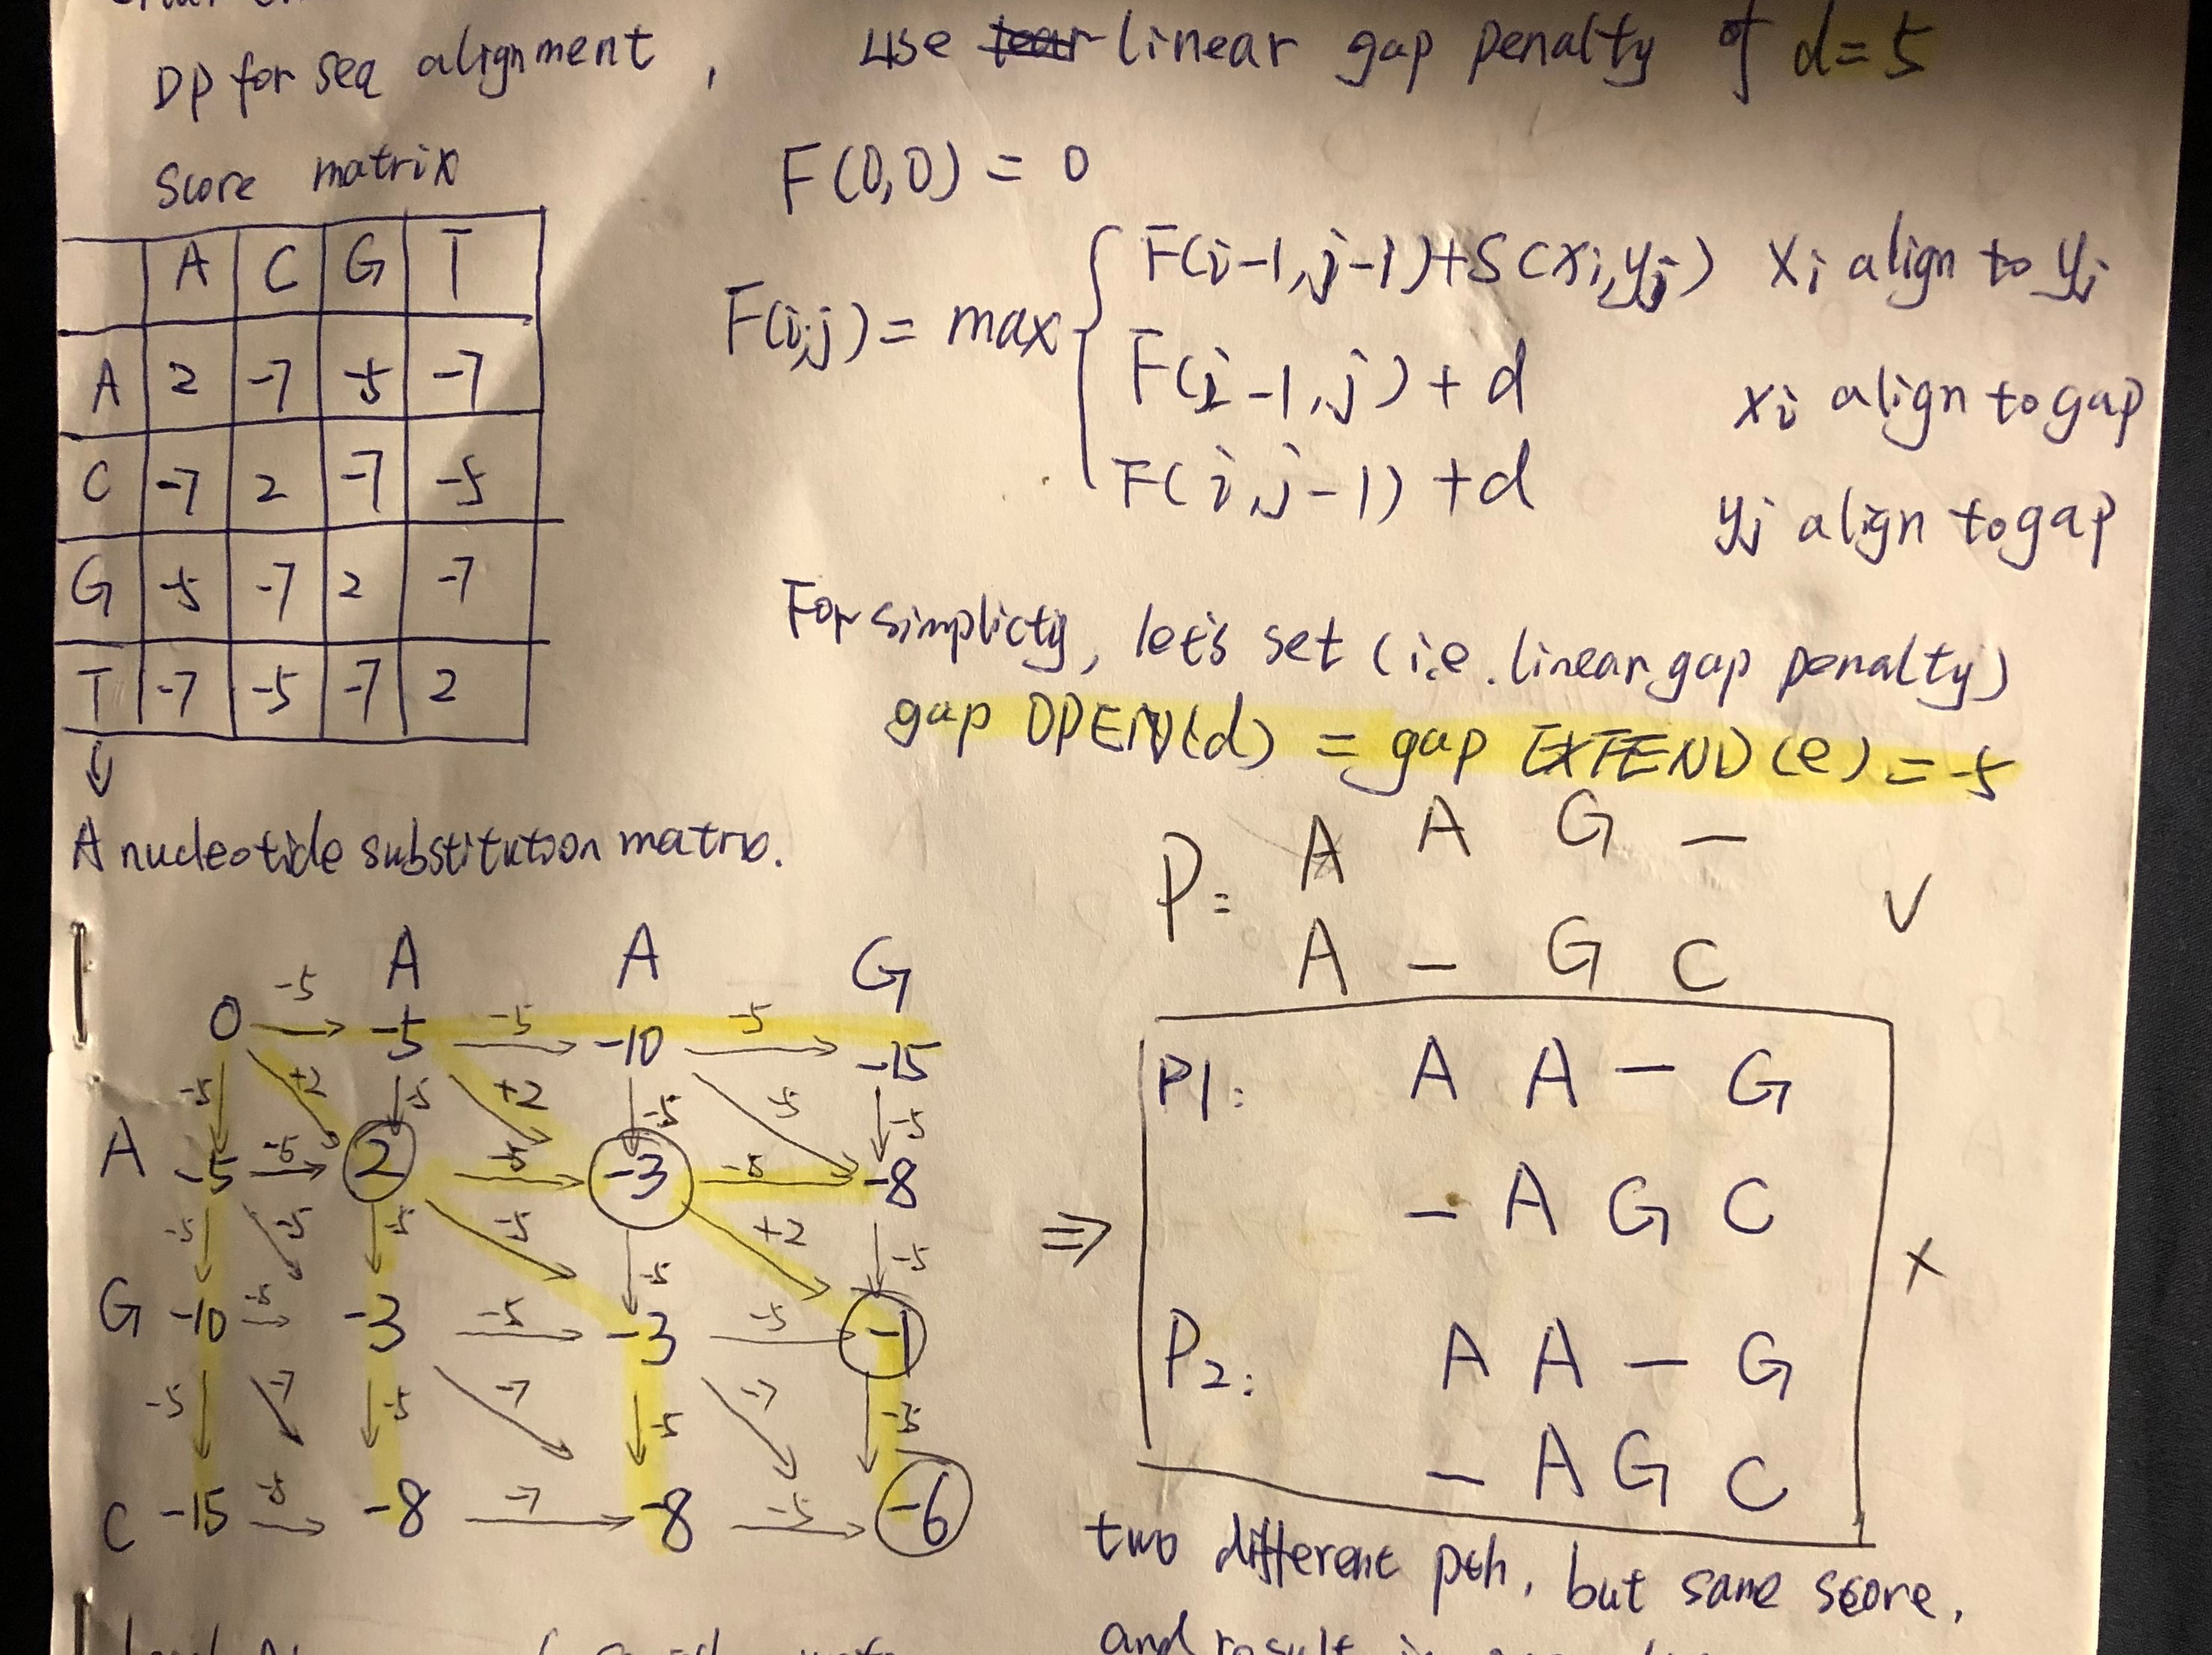 DP for seq alignment, use linear gap penalty of d=5
Score matrix
A C G T
A 2 -7 -5 -7
C -7 2 -7 -5
G -5 -7 2 -7
T -7 -5 -7 2
↓
A nucleotide substitution matrix.
F(0,0) = 0
F(i,j) = max
F(i-1,j-1)+S(xi,yj) xi align to yj
F(i-1,j)+d xi align to gap
F(i,j-1)+d yj align to gap
For simplicty, let's set (i.e. linear gap penalty)
gap OPEN(d) = gap EXTEND(e) = -5
P= A A G — ✓
A — G C
A A G
0 -5 → -5 -5 → -10 -5 → -15
-5 +2 -5 +2 -5 -5 -5
A -5 -5 → 2 -5 → -3 -5 → -8
-5 -5 -5 -5 -5 +2 -5
G -10 -5 → -3 -5 → -3 -5 → -1
-5 -7 -5 -7 -5 -7 -5
C -15 -5 → -8 -7 → -8 -5 → -6
⇒
P1: A A — G
— A G C
×
P2: A A — G
— A G C
two different pth, but same score,